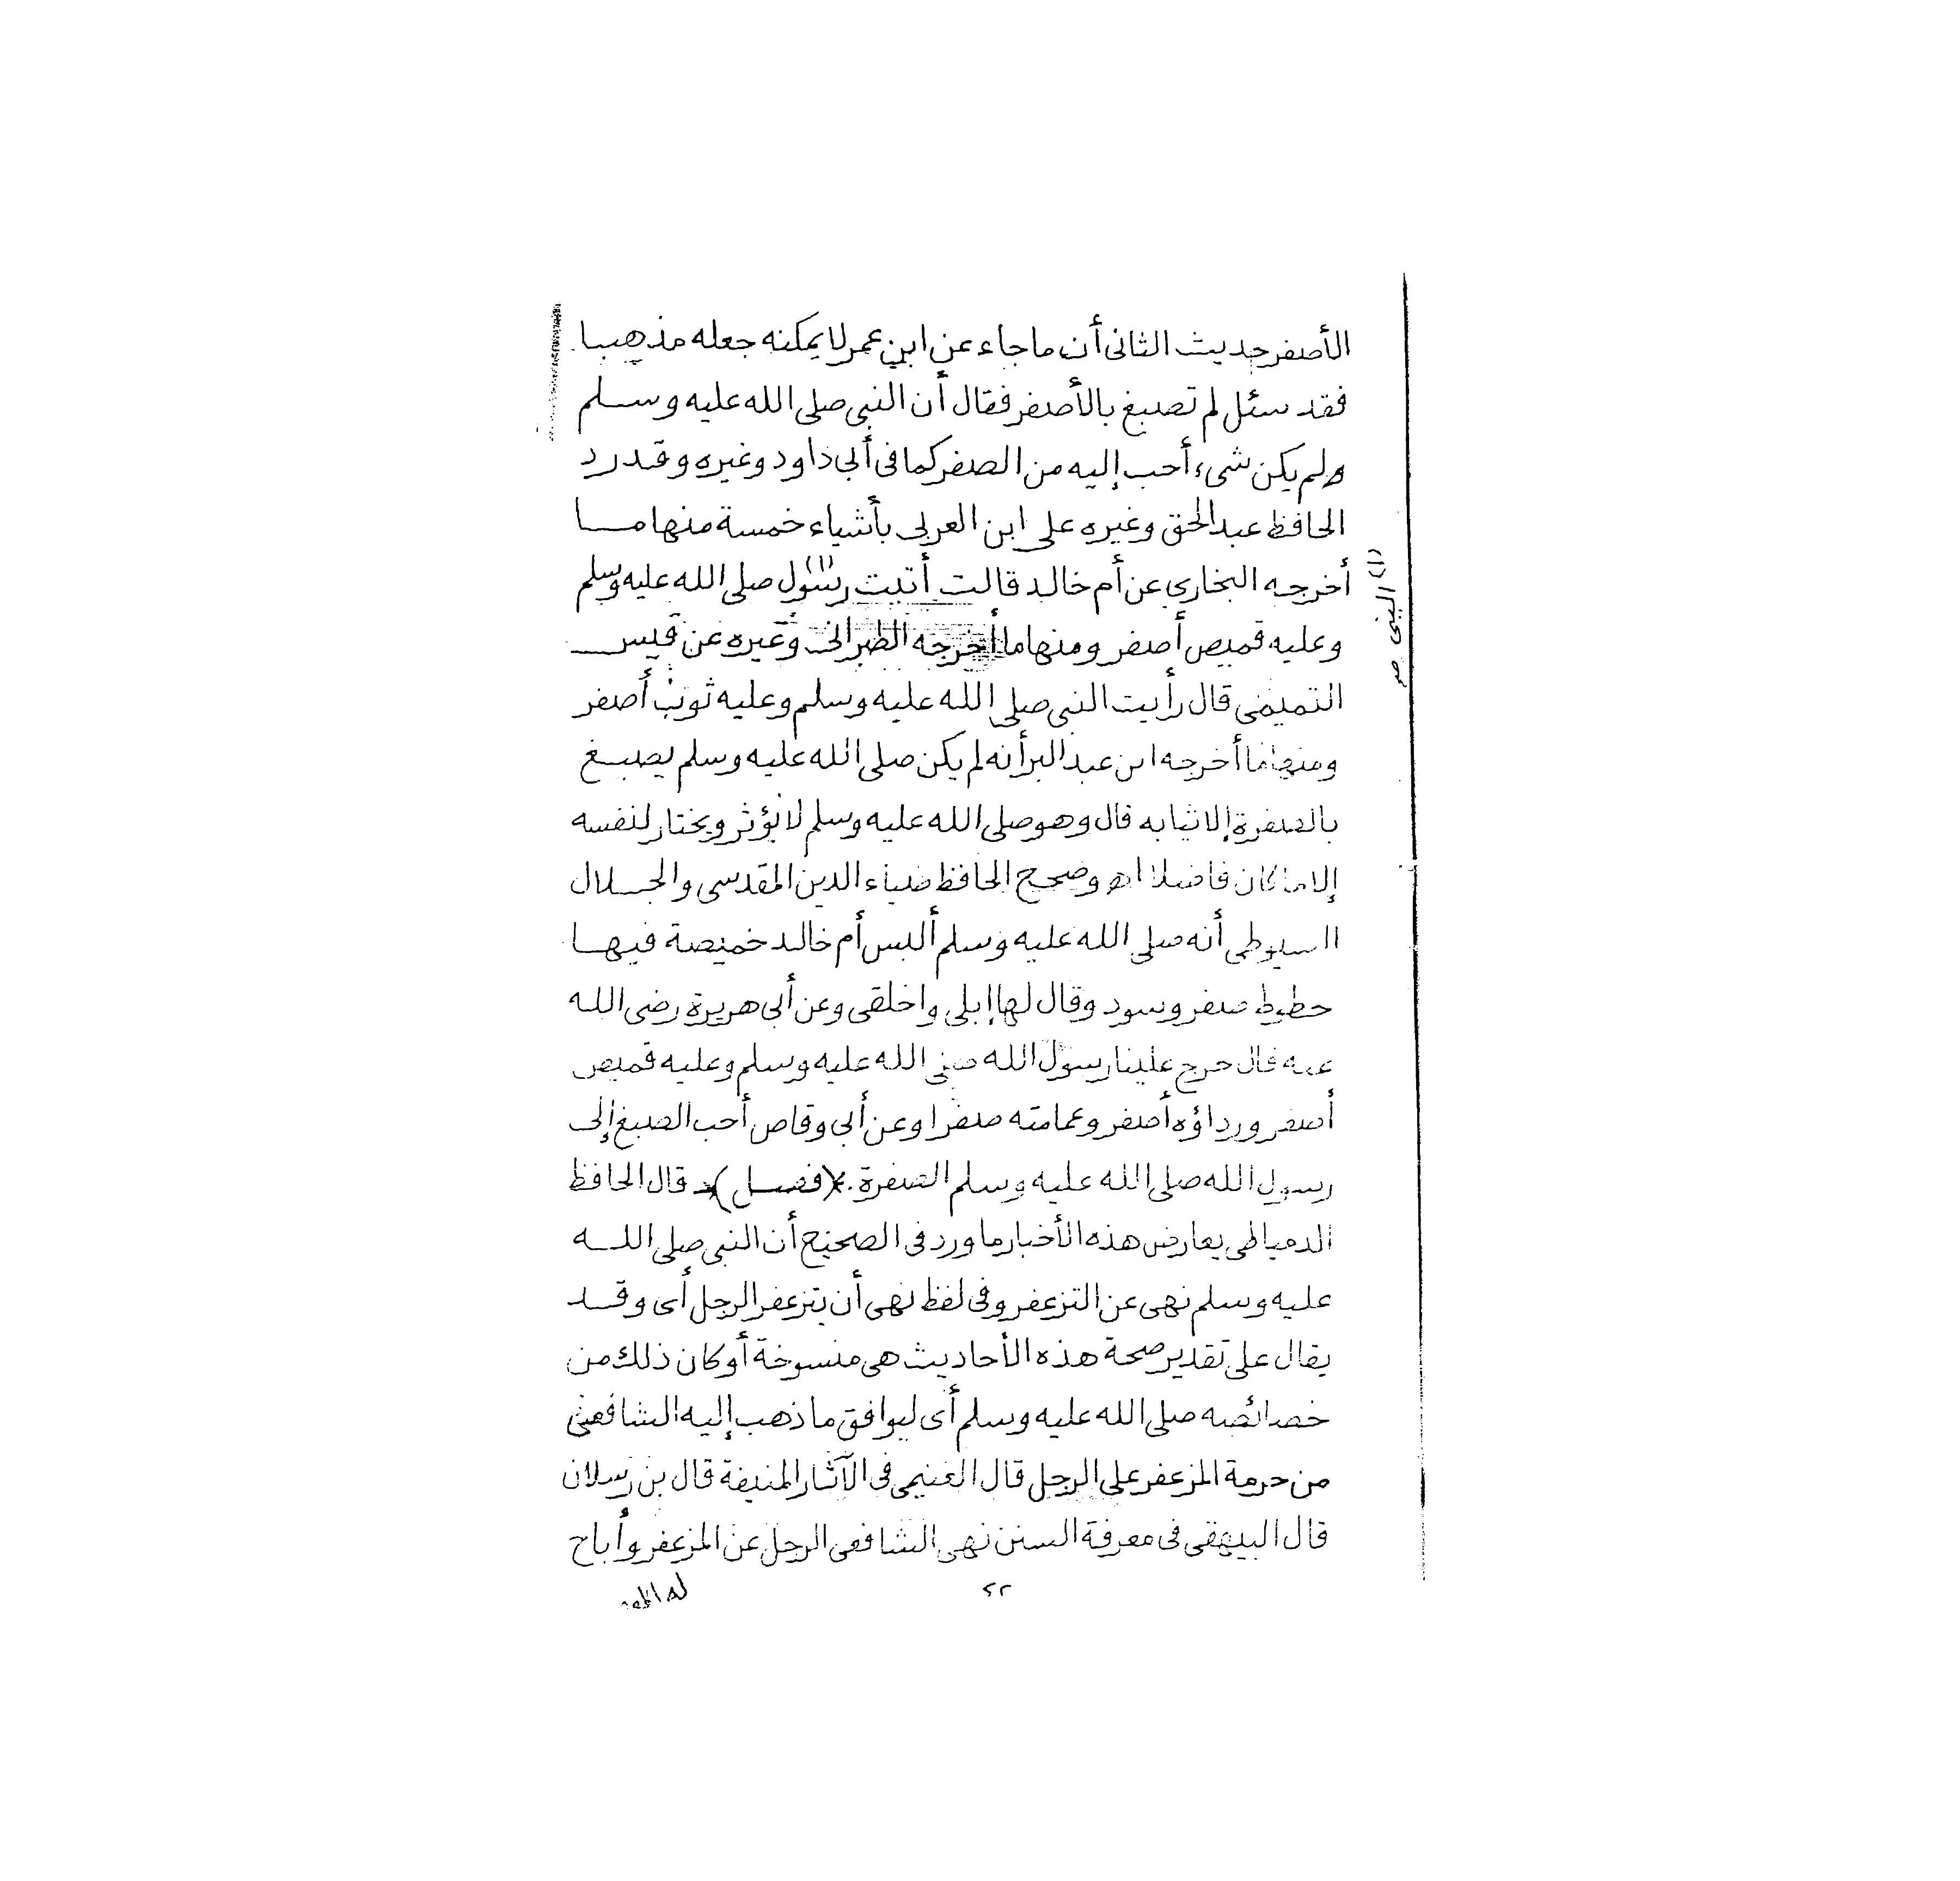 الأصفر حديث الثانى أن ما جاء عن ابن عمر لا يمكنه جعله مذهبا
فقد سئل لم تصبغ بالأصفر فقال أن النبى صلى الله عليه وسلم
ولم يكن شىء أحب إليه من الصفر كما فى أبى داود وغيره وقد رد
الحافظ عبد الحق وغيره على ابن العربى بأشياء خمسة منها ما
أخرجه البخارى عن أم خالد قالت أتيت رسول (١) صلى الله عليه وسلم
وعليه قميص أصفر ومنها ما أخرجه الطبرانى وغيره عن قيس
التميمى قال رأيت النبى صلى الله عليه وسلم وعليه ثوب أصفر
ومنها ما أخرجه ابن عبد البر أنه لم يكن صلى الله عليه وسلم يصبغ
بالصفرة إلا ثيابه قال وهو صلى الله عليه وسلم لا يؤثر ويختار لنفسه
إلا ما كان فاضلا اهـ وصحح الحافظ ضياء الدين المقدسى والجلال
السيوطى أنه صلى الله عليه وسلم ألبس أم خالد خميصة فيها
خطيط صفر وسود وقال لها إبلى واخلقى وعن أبى هريرة رضى الله
عنه قال خرج علينا رسول الله صلى الله عليه وسلم وعليه قميص
أصفر ورداؤه أصفر وعمامته صفرا وعن أبى وقاص أحب الصبغ إلى
رسول الله صلى الله عليه وسلم الصفرة . *(فصل)* قال الحافظ
الدمياطى يعارض هذه الأخبار ما ورد فى الصحيح أن النبى صلى الله
عليه وسلم نهى عن التزعفر وفى لفظ نهى أن يتزعفر الرجل أى وقد
يقال على تقدير صحة هذه الأحاديث هى منسوخة أو كان ذلك من
خصائصه صلى الله عليه وسلم أى ليوافق ما ذهب إليه الشافعى
من حرمة المزعفر على الرجل قال الغنيمى فى الآثار المنيفة قال بن رسلان
قال البيهقى فى معرفة السنن نهى الشافعى الرجل عن المزعفر وأباح
٢٢
(١) النبى صح